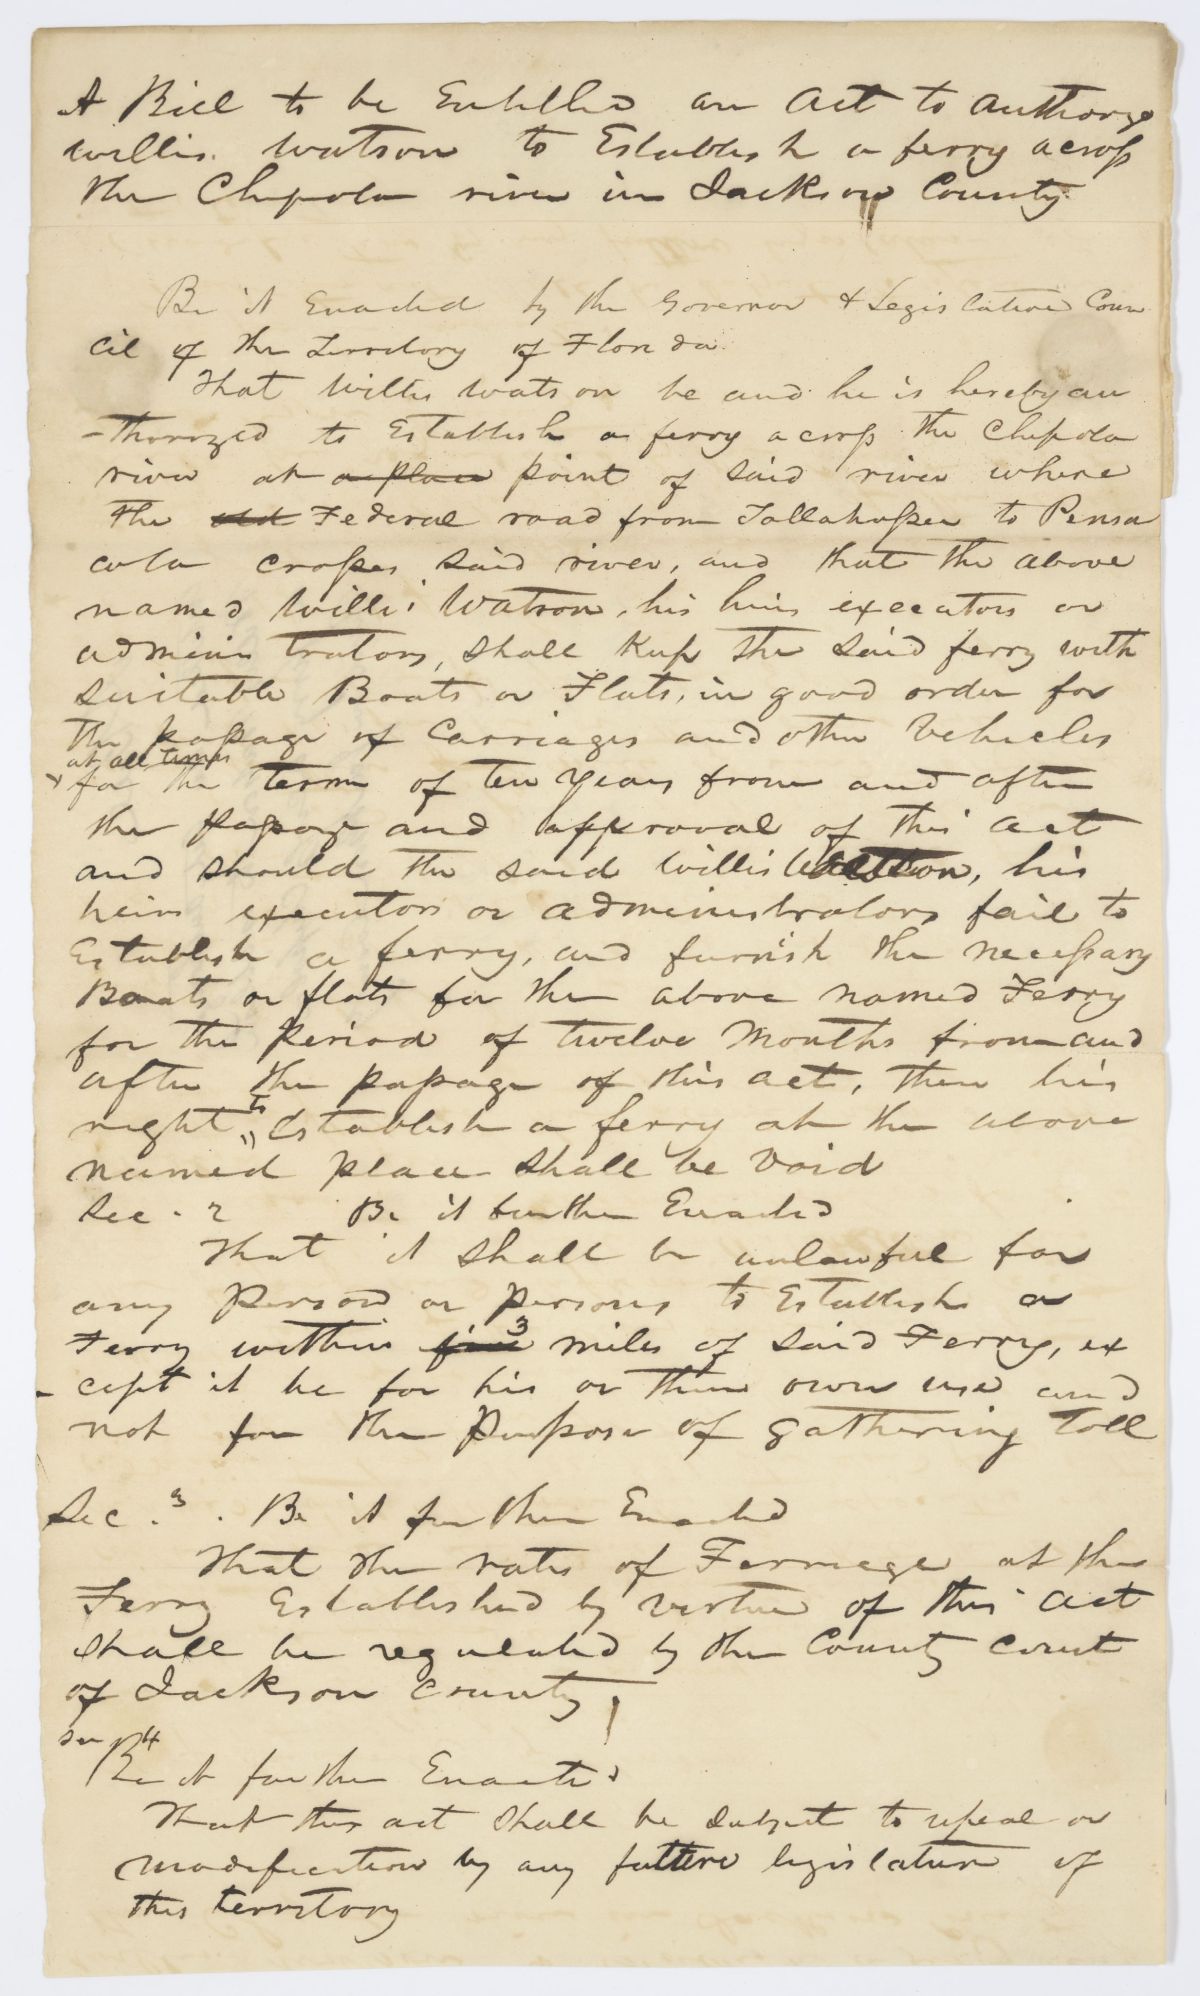 A Bill to be Entitled an act to authorize
willis watson to Establish a ferry across
the Chipola river in Jackson County
Be it Enacted by the Governor & Legislative Coun
cil of the Territory of Florida
That Willis Watson be and he is hereby au
-thorized to Establish a ferry across the Chipola
river at a place point of said river where
the old Federal road from Tallahassee to Pensa
cola crosses said river, and that the above
named Willis Watson, his heirs executors or
adminis trators, shall keep the said ferry with
suitable Boats or Flats, in good order for
the passage of Carriages and other Vehicles
at all times
for the term of ten years from and after
the passage and approval of this act
and should the said Willis Watson, his
heirs executors or administrators fail to
Establish a ferry, and furnish the necessary
Boats or flats for the above named Ferry
for the period of twelve Months from and
after the passage of this act, then his
right to Establish a ferry at the above
named place shall be void
Sec. 2 Be it further Enacted
That it shall be unlawful for
any Person or persons to Establish a
Ferry within five 3 miles of said Ferry, ex
- cept it be for his or their own use and
not for the Purpose of gathering toll
Sec. 3. Be it further Enacted
That the rates of Ferriage at the
Ferry Established by virtue of this act
shall be regulated by the County court
of Jackson County
Sec 4
Be it further Enacted
That this act shall be subject to repeal or
modification by any future legislature of
this territory